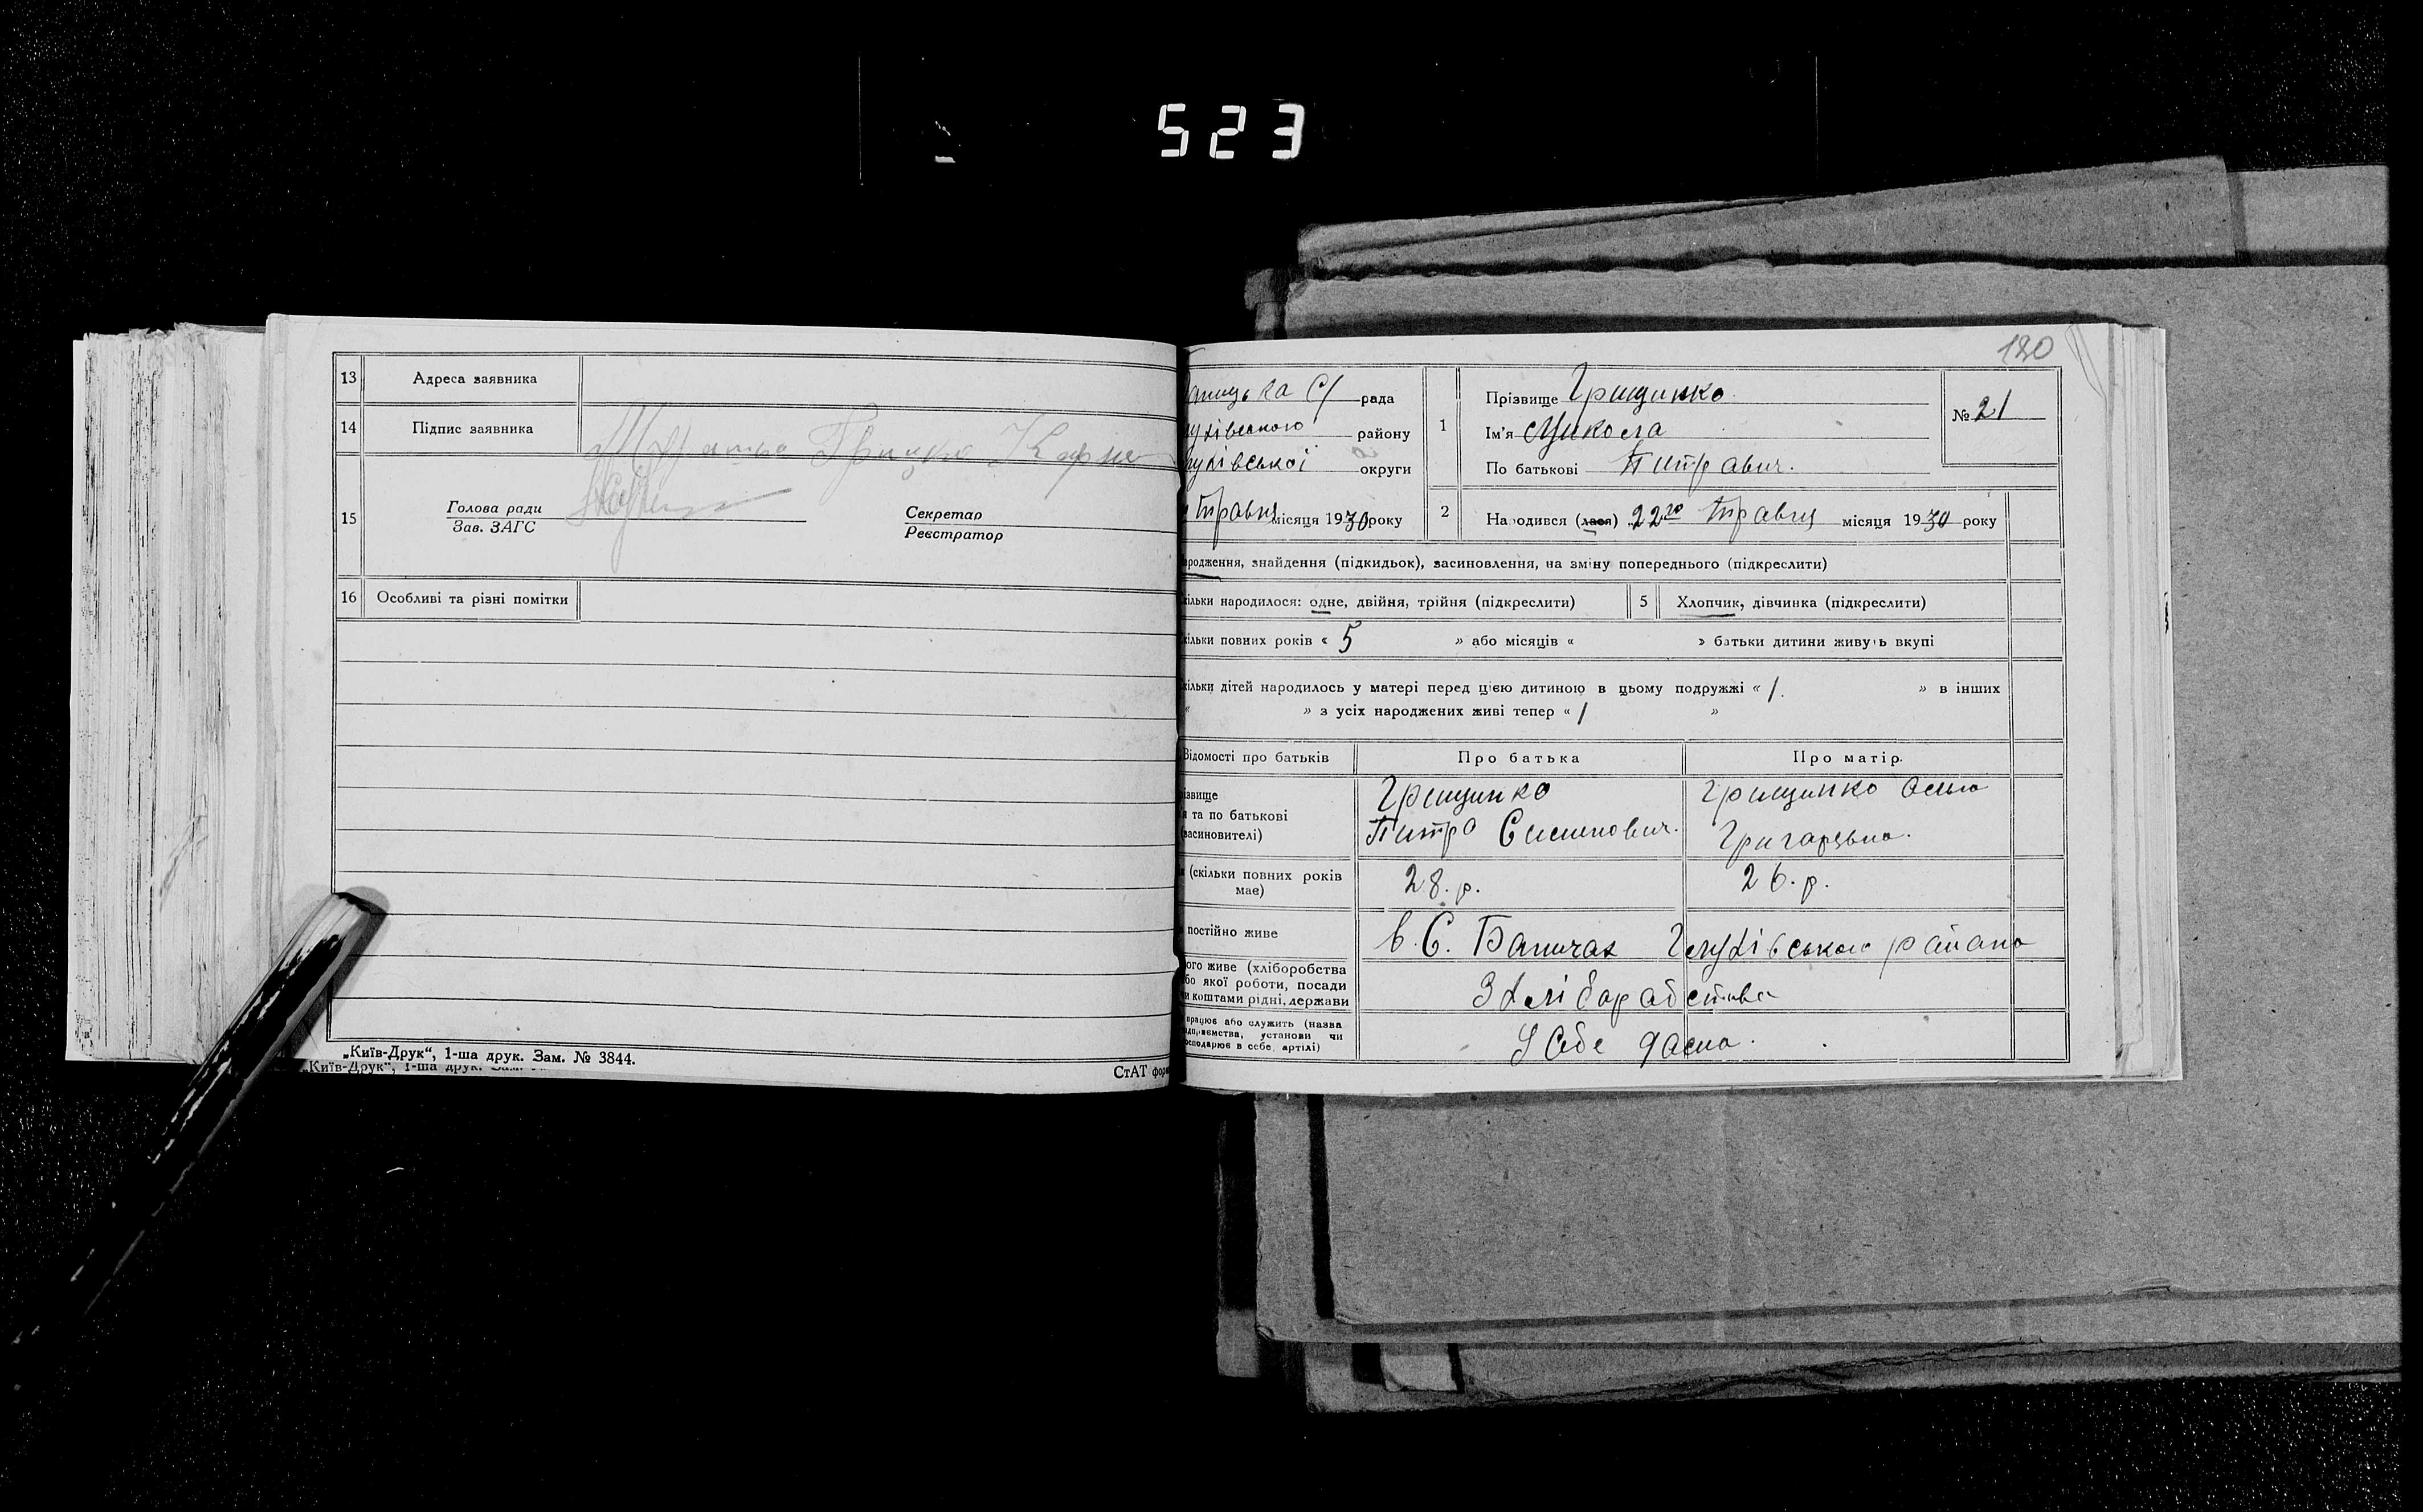 523
13 Адреса заявника
14 Підпис заявника
15 Голова ради
Зав. ЗАГС
Секретар
Реєстратор
16 Особливі та різні помітки
„Київ-Друк“, 1-ша друк. Зам. № 3844.
Київ-Друк“, 1-ша друк.
СтАТ
180
рада
району
округи
Травня місяця 1930 року
1 Прізвище Грищинко
Ім'я Микола
По батькові Питравич.
№ 21
2 Народився (лася) 22го Травня місяця 1930 року
родження, знайдення (підкидьок), засиновлення, на зміну попереднього (підкреслити)
кільки народилося: одне, двійня, трійня (підкреслити) 5 Хлопчик, дівчинка (підкреслити)
кільки повних років « 5 » або місяців « » батьки дитини живуть вкупі
кільки дітей народилось у матері перед цією дитиною в цьому подружжі « 1. » в інших
« » з усіх народжених живі тепер « 1 »
Відомості про батьків Про батька Про матір
ізвище Грищинко Грищинко
та по батькові Питро
засиновителі) Григарцвна.
(скільки повних років має) 28. р. 26. р.
постійно живе в. С. Баничах Глухівського райана
ого живе (хліборобства
бо якої роботи, посади
и коштами рідні, держави
З хліборабства
працює або служить (назва
установи чи
в себе, артілі)
У Себе